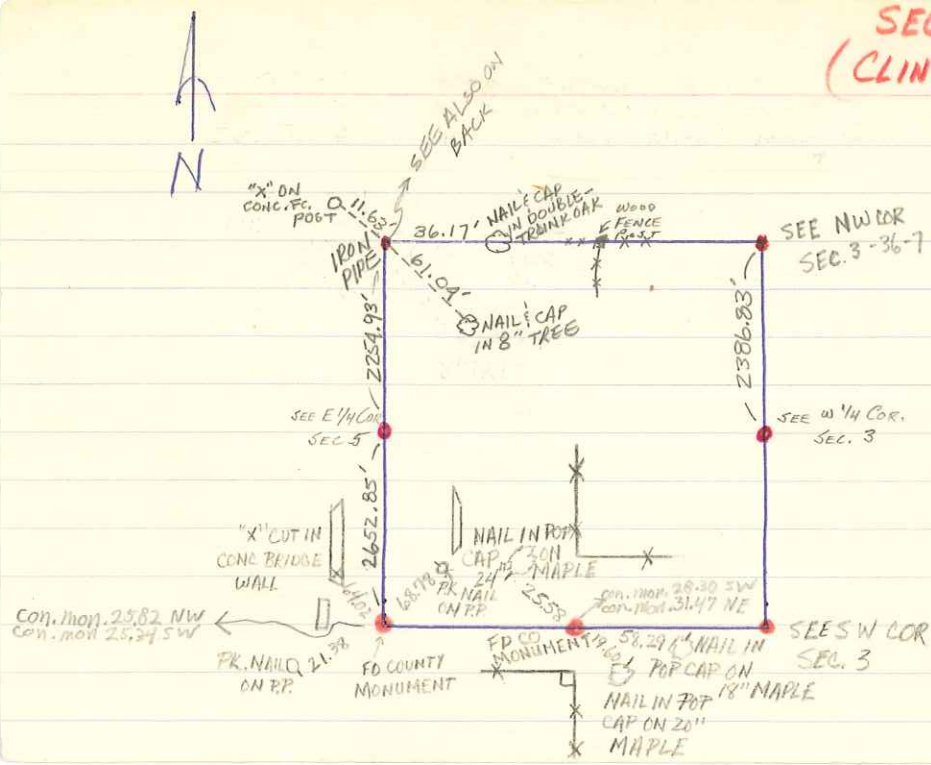 SEC
(CLIN
N
SEE ALSO ON
BACK
"X" ON
CONC. FC.
POST
11.63'
IRON
PIPE
36.17'
NAIL & CAP
IN DOUBLE-
TRUNK OAK
WOOD
FENCE
POST
SEE NW COR
SEC. 3-36-7
61.04'
NAIL & CAP
IN 8" TREE
2254.93'
2386.83'
SEE E 1/4 COR
SEC 5
SEE W 1/4 COR.
SEC. 3
2652.85'
"X" CUT IN
CONC BRIDGE
WALL
64.02
68.78
PK
NAIL
ON P.P.
NAIL IN POP
CAP ON
24" MAPLE
25.58
con. mon. 28.30 SW
con. mon. 31.47 NE
con. mon. 25.82 NW
con. mon 25.34 SW
PK. NAIL
ON P.P.
21.38
FD COUNTY
MONUMENT
FD CO
MONUMENT
19.60
58.29
NAIL IN
POP CAP ON
18" MAPLE
NAIL IN POP
CAP ON 20"
MAPLE
SEE SW COR
SEC. 3